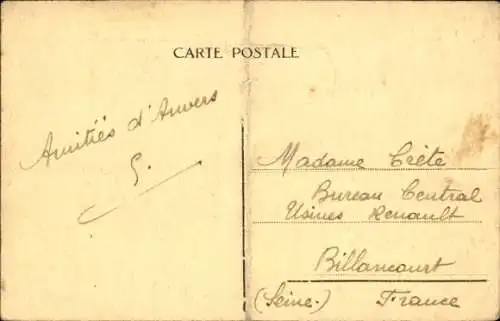 CARTE POSTALE
Amitiés d'Anvers
G.
Madame Crète
Bureau Central
Usines Renault
Billancourt
(Seine.) France